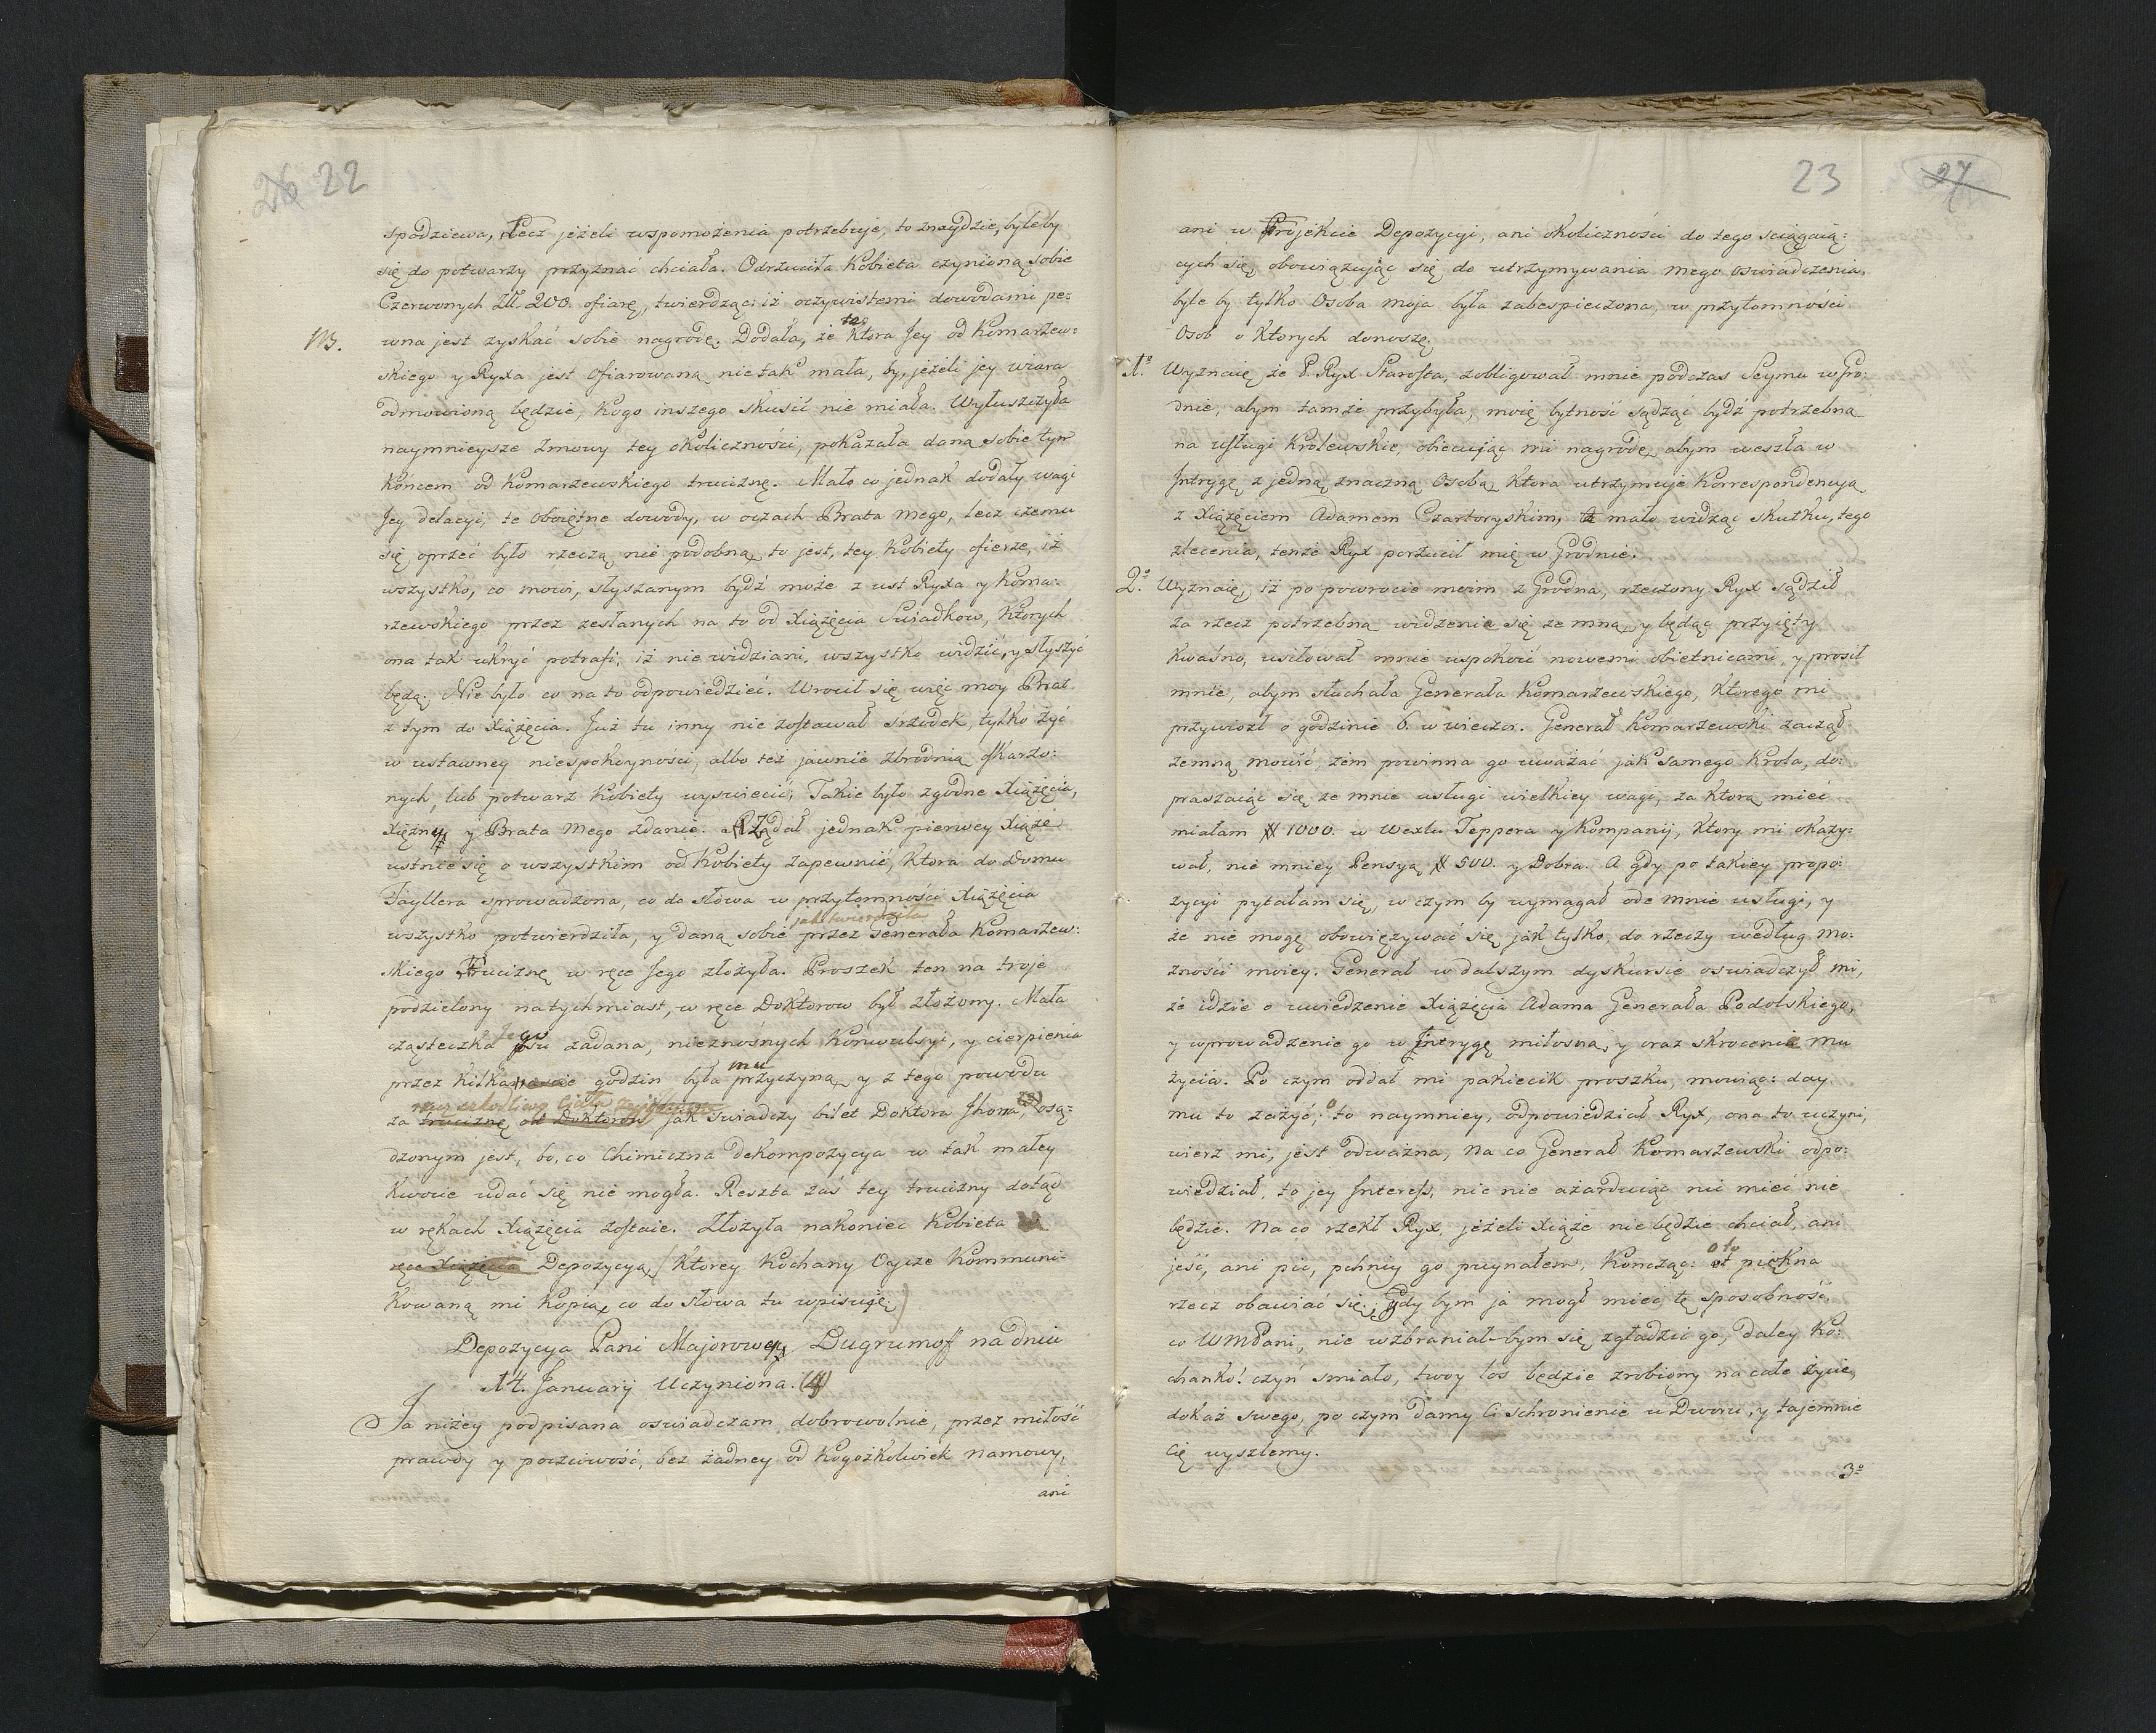 26 22
spodziewa, Lecz jeżeli wspomożenia potrzebuje, to znaydzie, byleby
się do potwarzy przyznać chciała. Odrzuciła Kobieta czynioną sobie
Czerwonych Zll. 200. ofiarę, twierdząc: iż oczywistemi dowodami pe:
113.
ta
wna jest zyskać sobie nagrodę. Dodała, że Ktora Jey od Komarzew:
skiego y Ryxa jest ofiarowaną nie tak mała, by, jeżeli jey wiara
odmowioną będzie, Kogo inszego skusić nie miała. Wyłuszczyła
naymnieysze zmowy tey okoliczności, pokazała daną sobie tym
Koncem od Komarzewskiego truciznę. Mało co jednak dodały wagi
Jey delacyi, te oboiętne dowody, w oczach Brata mego, lecz czemu
się oprzeć było rzeczą nie podobną, to jest, tey Kobiety ofierze, iż
wszystko, co mowi, słyszanym bydź może z ust Ryxa y Koma:
rzewskiego przez zesłanych na to od Xiążęcia Swiadkow, Ktorych
ona tak ukryć potrafi, iż nie widziani, wszystko widzić, y słyszyć
będą. Nie było co na to odpowiedzieć. Wrocił się więc moy Brat
z tym do Xiążęcia. Już tu inny nie zostawał srzodek, tylko żyć
w ustawney niespokoyności, albo też jawnie zbrodnią oskarżo:
nych, lub potwarz Kobiety wyswiecić; Takie było zgodne Xiążęcia,
Xiężny y Brata mego zdanie. Żądał jednak pierwey Xiąże
ustnie się o wszystkim od Kobiety zapewnić, Ktora do Domu
Tayllera sprowadzona, co do słowa w przytomności Xiążęcia
jak twierdziła
wszystko potwierdziła, y daną sobie przez Generała Komarzew:
skiego Truciznę w ręce Jego złożyła. Proszek ten na troje
podzielony natychmiast, w ręce Doktorow był złożony. Mała
Jego
cząsteczka psu zadana, nieznośnych Konwulsyi, y cierpienia
mu
przez Kilkanaście godzin była przyczyną, y z tego powodu
rzecz szkodliwą Ciału
za truciznę od Doktorow jak swiadczy bilet Doktora Jhona, (3) osą:
dzonym jest, bo, co Chimiczna dekompozycya w tak małey
Kwocie udać się nie mogła. Reszta zaś tey trucizny dotąd
w rękach Xiążęcia zostaie. Złożyła nakoniec Kobieta
ręce Xiążęcia Depozycyą, /Ktorey Kochany Oycze Kommuni-
Kowaną mi Kopią, co do słowa tu wpisuję)
Depozycya Pani Majorowey Dugrumoff na dniu
14. Januarij Uczyniona. (4)
Ja niżey podpisana oswiadczam dobrowolnie, przez miłość
prawdy y poczciwość, bez żadney od Kogożkolwiek namowy,
ani
23 27
ani w Projekcie Depozycyi, ani okoliczności do tego sciągaią:
cych się, obowiązując się do utrzymywania mego oswiadczenia,
byle by tylko Osoba moja była zabespieczona, w przytomności
Osob o Ktorych donoszę.
1.o Wyznaię że P. Ryx Starosta, zobligował mnie podczas Seymu w Gro:
dnie, abym tamże przybyła, moię bytność sądząc bydź potrzebną
na usługi Krolewskie, obiecując mi nagrodę, abym weszła w
Intrygę z jedną znaczną Osobą, Ktora utrzymuje Korrespondencyą
z Xiążęciem Adamem Czartoryskim, mało widząc skutku, tego
zlecenia, tenże Ryx porzucił mię w Grodnie.
2.o Wyznaię, iż po powrocie moim z Grodna, rzeczony Ryx sądził
za rzecz potrzebną widzenie się ze mną, y będąc przyięty
Kwaśno, usiłował mnie uspokoić nowemi obietnicami, y prosił
mnie, abym słuchała Generała Komarzewskiego, Ktorego mi
przywiozł o godzinie 6. w wieczor. Generał Komarzewski zaczął
zemną mowić, żem powinna go uważać jak samego Krola, do:
praszaiąc się ze mnie usługi wielkiey wagi, za Ktorą mieć
miałam # 1000. w Wexlu Teppera y Kompanij, Ktory mi okazy:
wał, nie mniey Pensyą # 500. y Dobra. A gdy po takiey propo:
zycyi pytałam się, w czym by wymagał ode mnie usługi, y
że nie mogę obowięzywać się jak tylko, do rzeczy według mo:
zności moiey. Generał w dalszym dyskursie oswiadczył mi,
że idzie o uwiedzenie Xiążęcia Adama Generała Podolskiego,
y wprowadzenie go w Intrygę miłosną, y oraz skrocenie mu
życia. Po czym oddał mi pakiecik proszku, mowiąc: day
mu to zażyć; o to naymniey, odpowiedział Ryx, ona to uczyni,
wierz mi, jest odważna, Na co Generał Komarzewski odpo:
wiedział, to jey Interess, nic nie ażarduiąc nic mieć nie
będzie. Na co rzekł Ryx, jeżeli Xiąże nie będzie chciał, ani
oto
jeść, ani pić, pchniy go puynałem, Koncząc: ot piękna
rzecz obawiać się, Gdy bym ja mogł mieć tę sposobność,
co WMPani, nie wzbraniał-bym się zgładzić go, daley Ko:
chanko! czyń smiało, twoy los będzie zrobiony na całe życie,
dokaż swego, po czym damy Ci schronienie u Dworu, y tajemnie
Cię wyszlemy.
3.o